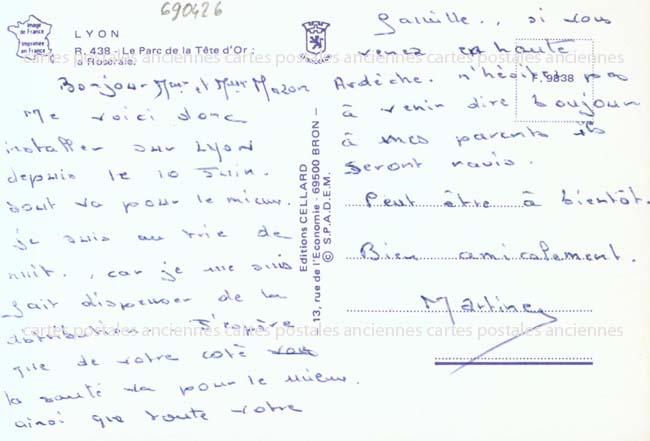 690426
Image de France
Imprimée en France
LYON
R. 438 - Le Parc de la Tête d'Or :
la Roseraie.
Bonjour Mme et Mr Mazon
Me voici donc
installer sur Lyon
depuis le 10 Juin.
tout va pour le mieux.
je suis au trie de
nuit., car je me suis
fait dispenser de la
distribution. J'espère
que de votre coté
la santé va pour le mieux.
ainsi que toute votre
Editions CELLARD
13, rue de l'Economie - 69500 BRON -
© S.P.A.D.E.M.
famille., si vous
venez en haute
Ardèche. n'hésitez pas
à venir dire boujour
à mes parents ils
seront ravis.
Peut être à bientôt.
Bien amicalement.
Martine
F. 9838
cartes postales anciennes cartes postales anciennes cartes postales anciennes
cartes postales anciennes cartes postales anciennes cartes postales anciennes